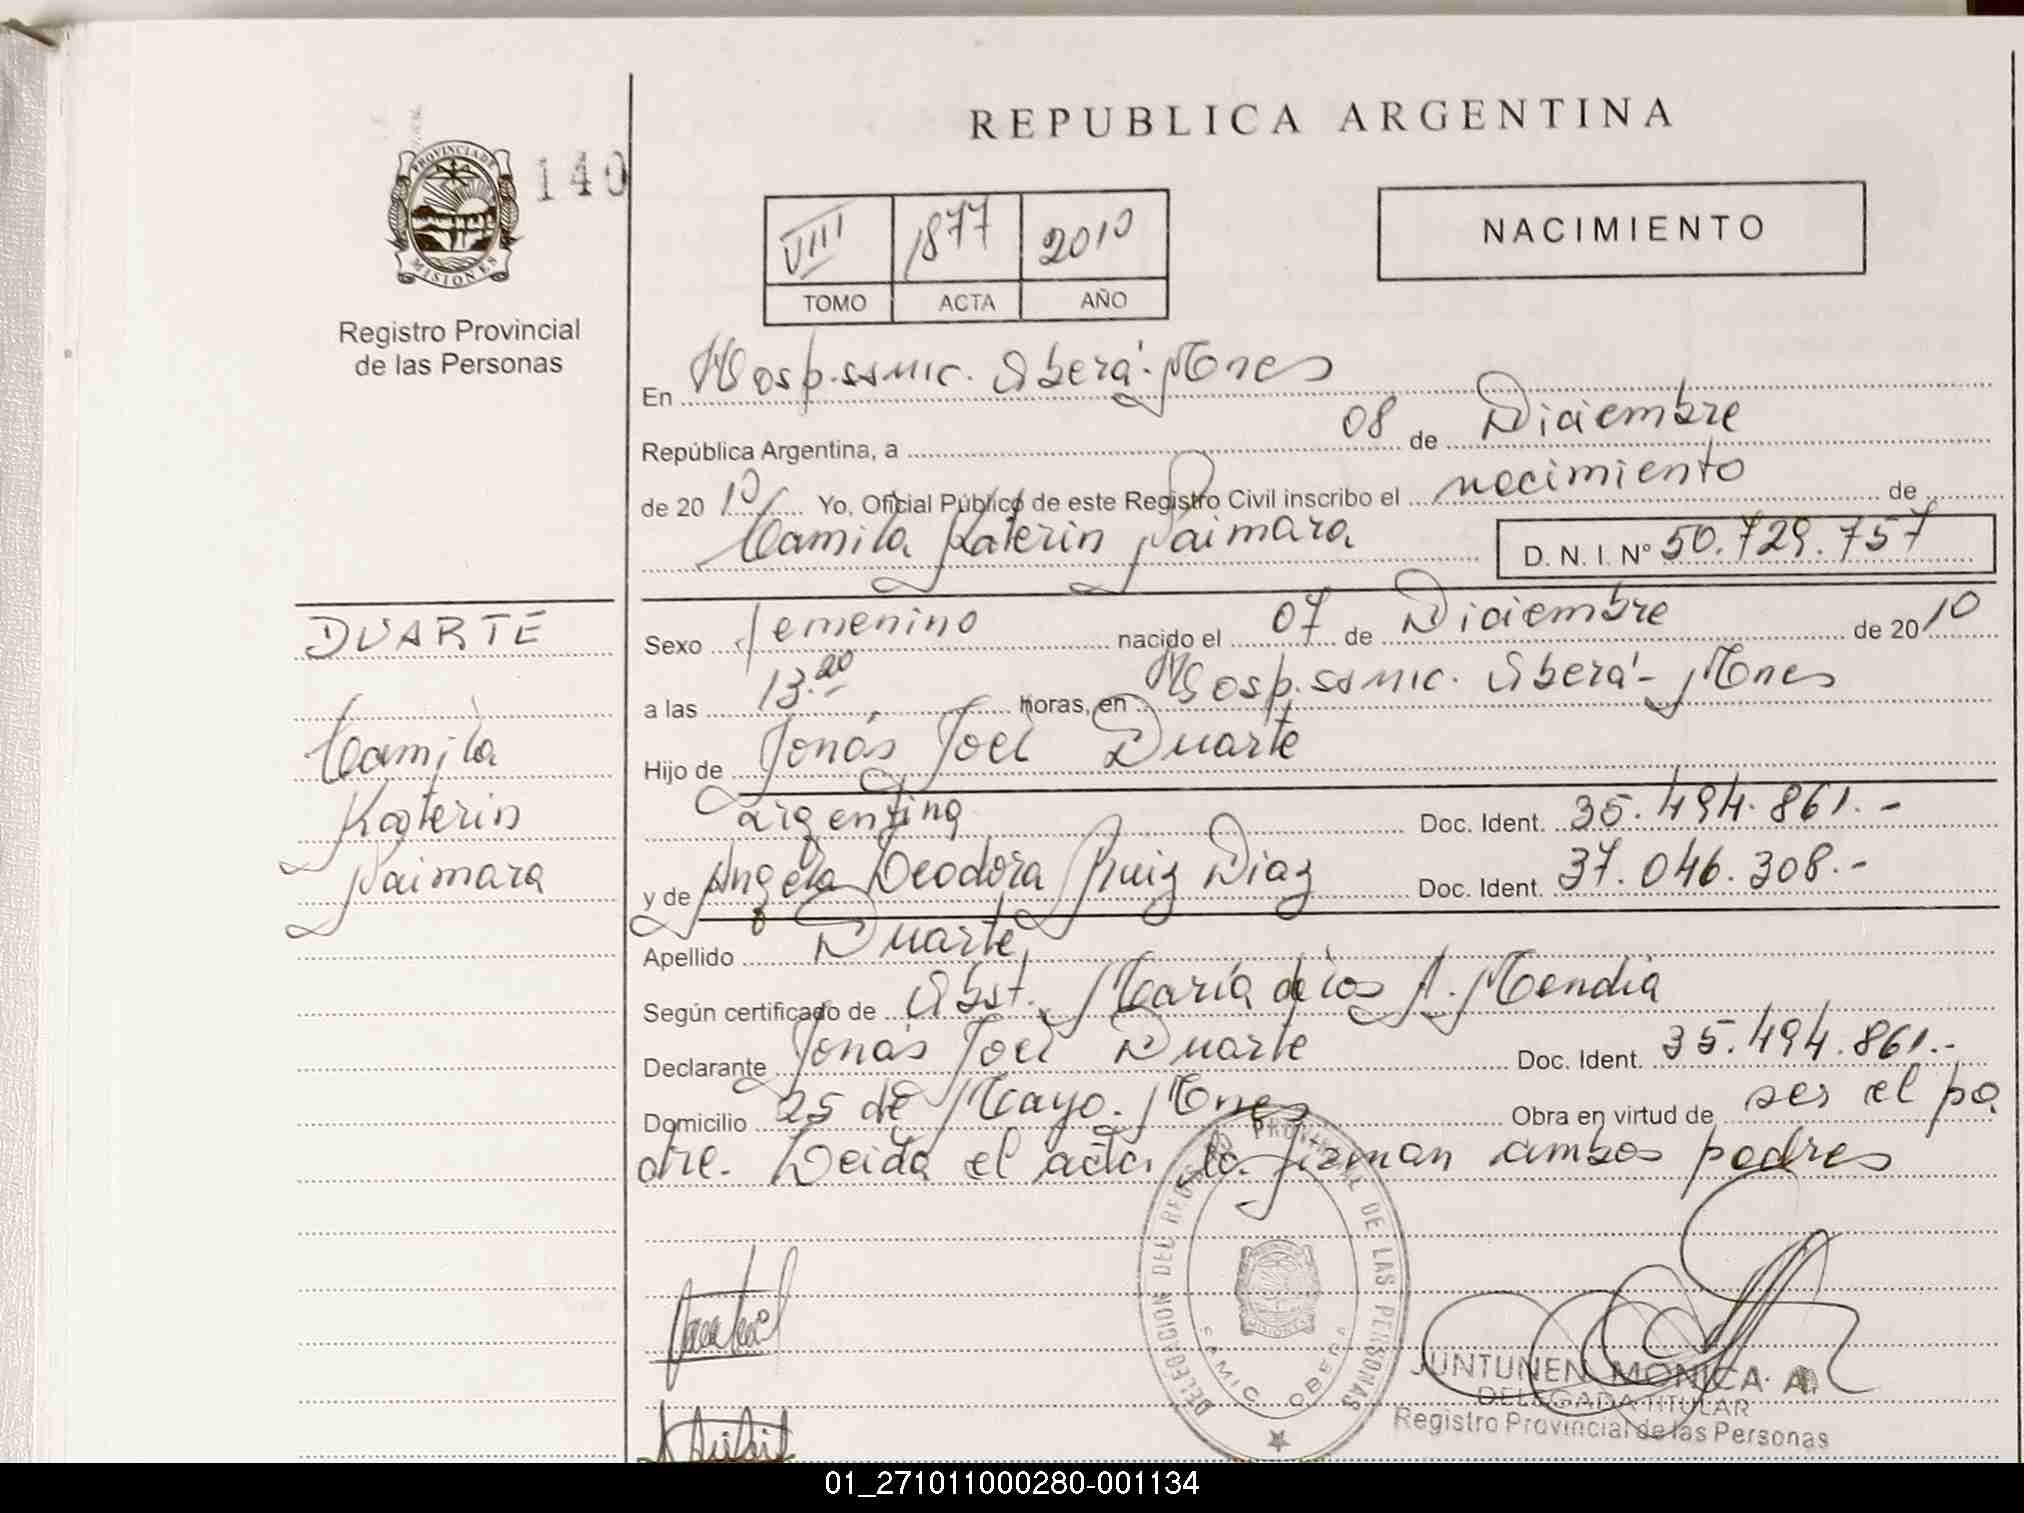 REPUBLICA ARGENTINA
PROVINCIA DE
MISIONES
140
Registro Provincial
de las Personas
VIII 1877 2010
TOMO ACTA AÑO
NACIMIENTO
En Hosp. SAMIC. Oberá - Mnes
República Argentina, a 08 de Diciembre
de 2010 Yo, Oficial Público de este Registro Civil inscribo el nacimiento de
Camila Katerin Naimara D. N. I. Nº 50.729.757
DUARTE
Camila
Katerin
Naimara
Sexo femenino nacido el 07 de Diciembre de 2010
a las 13.20 horas, en Hosp. SAMIC. Oberá - Mnes
Hijo de Jonás Joel Duarte
argentina Doc. Ident. 35.494.861.-
y de Angela Teodora Ruiz Diaz Doc. Ident. 37.046.308.-
Apellido Duarte
Según certificado de Obst. María de los A. Mendia
Declarante Jonás Joel Duarte Doc. Ident. 35.494.861.-
Domicilio 25 de Mayo. Mnes Obra en virtud de ser el pa
dre. Leida el acta, la firman ambos padres
DELEGACION DEL REGISTRO PROVINCIAL DE LAS PERSONAS
SAMIC OBERA
MISIONES
JUNTUNEN MONICA A.
DELEGADA TITULAR
Registro Provincial de las Personas
01_271011000280-001134